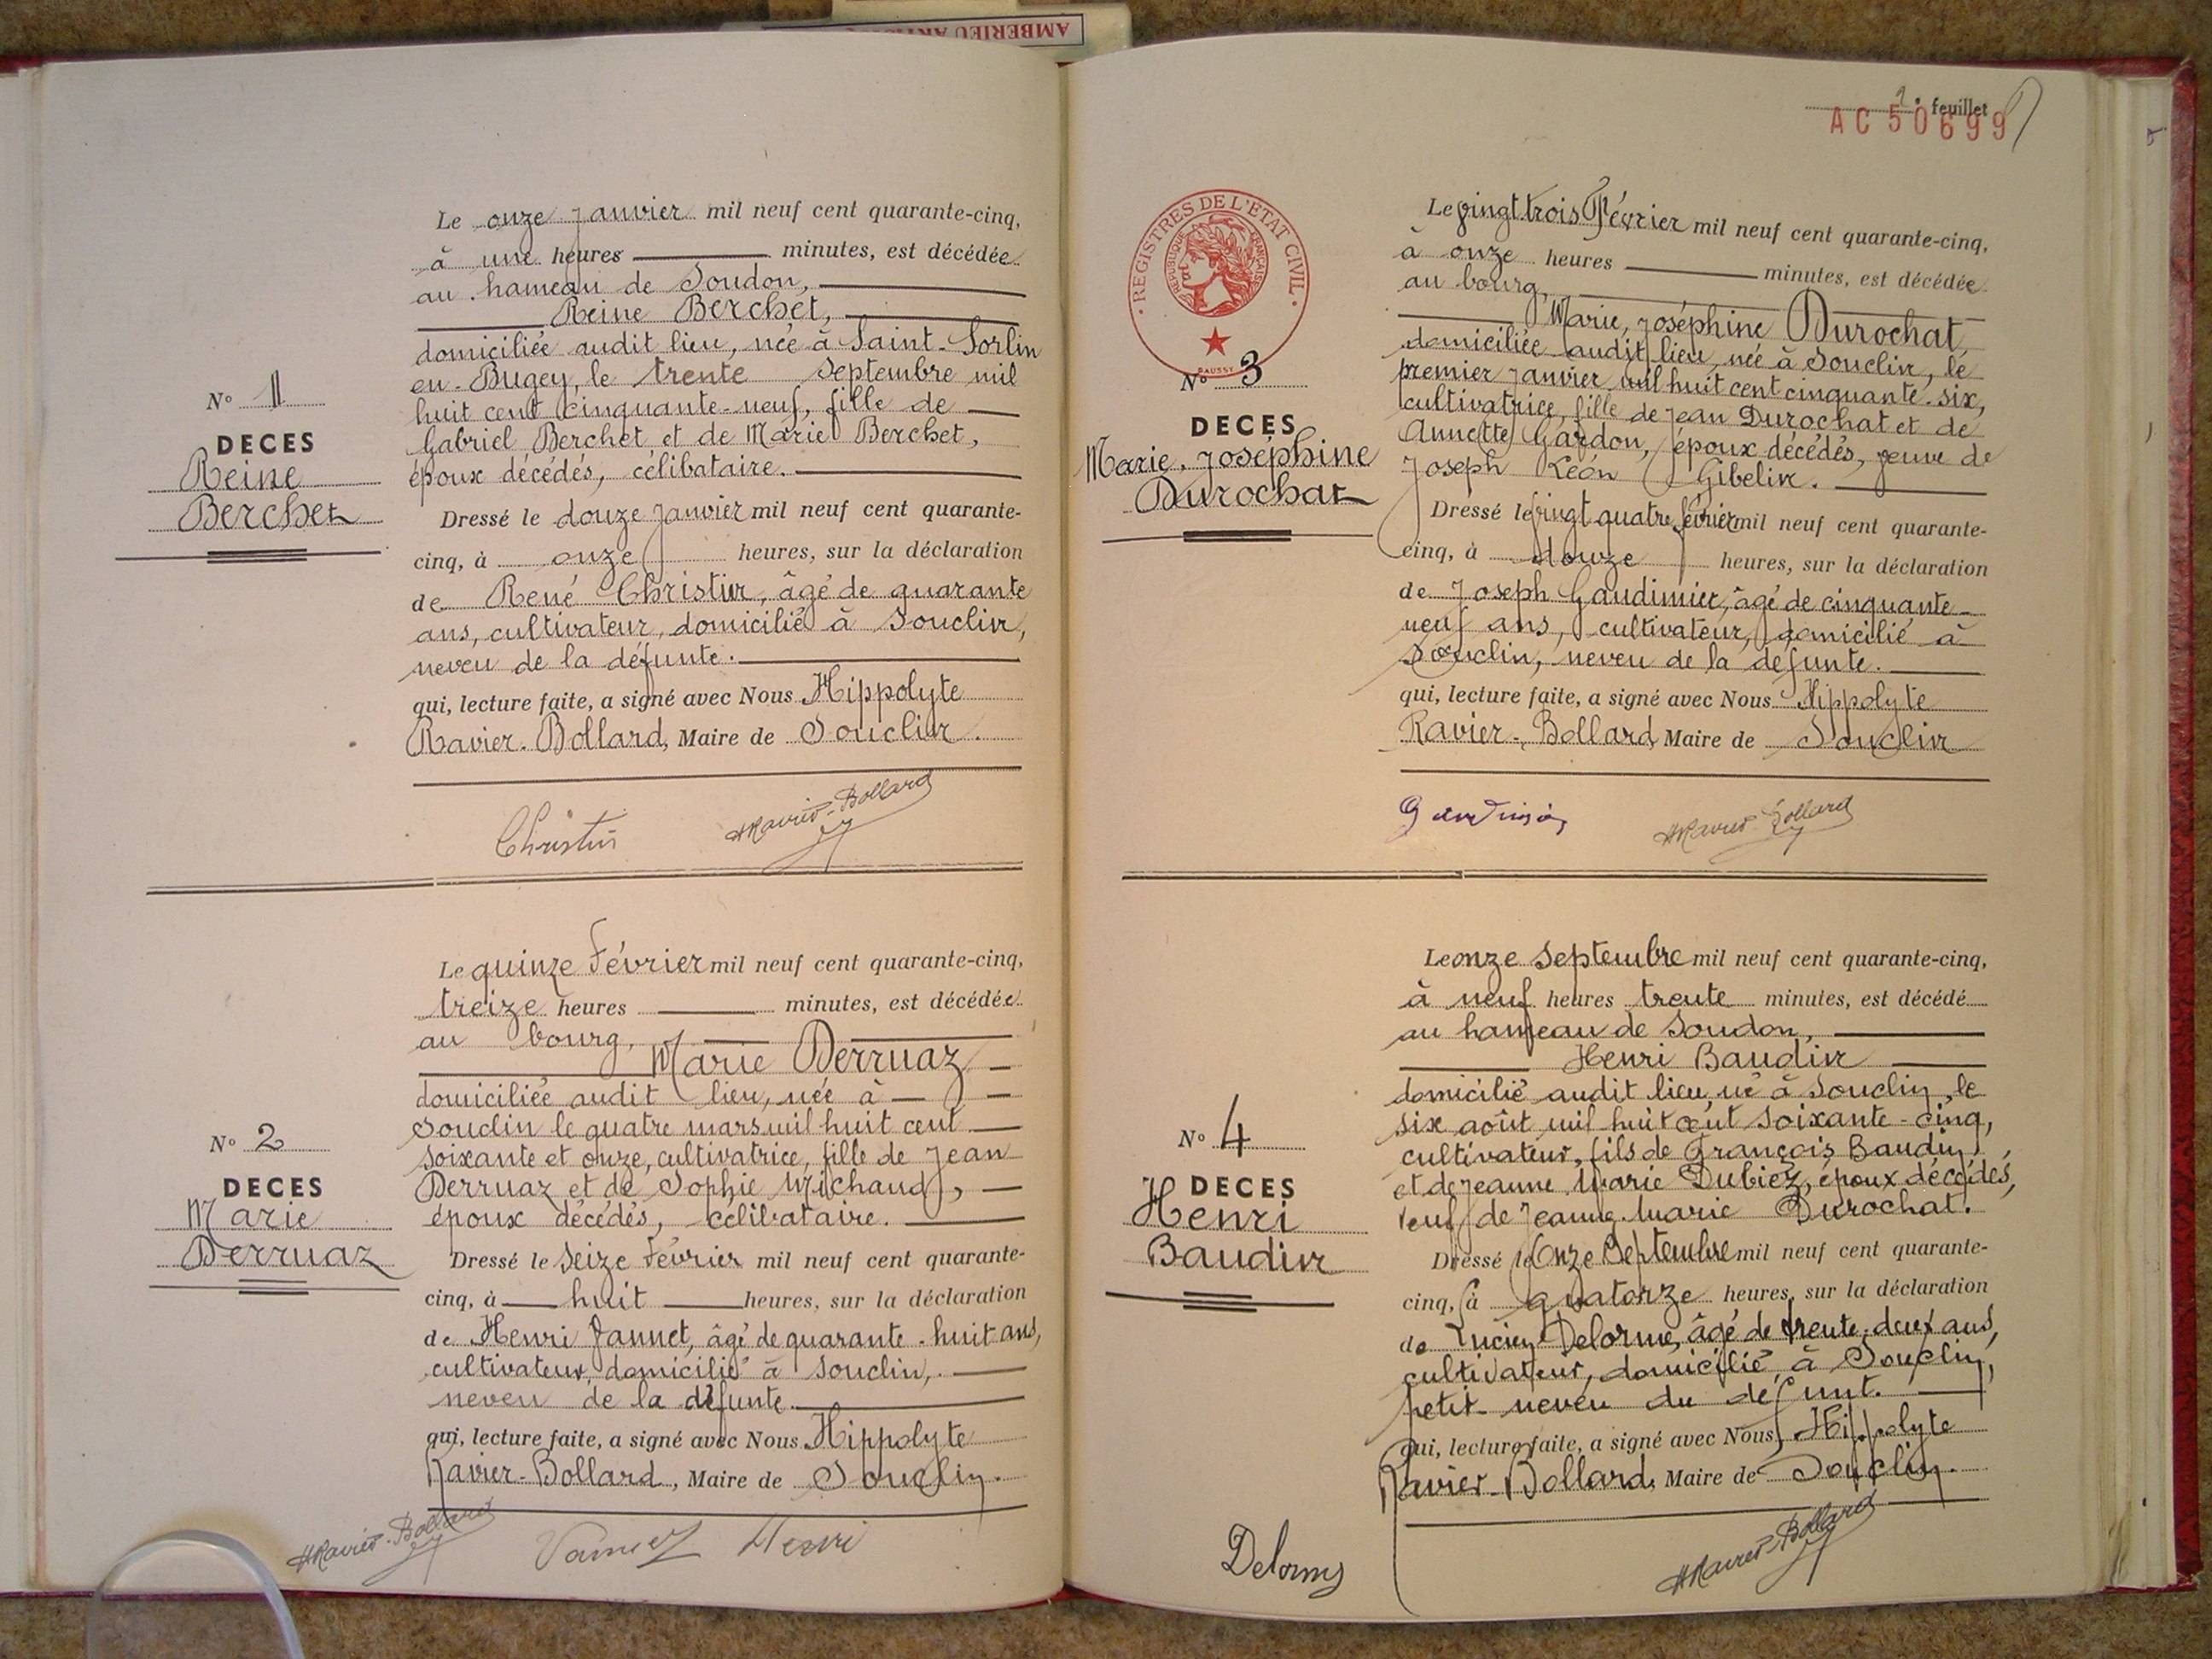 AMBERIEU
N° 1
DECES
Reine
Berchet
Le onze Janvier mil neuf cent quarante-cinq,
à une heures minutes, est décédée
au hameau de Soudon,
Reine Berchet,
domiciliée audit lieu, née à Saint-Sorlin
en-Bugey, le trente Septembre mil
huit cent cinquante-neuf, fille de
Gabriel Berchet et de Marie Berchet,
époux décédés, célibataire.
Dressé le douze Janvier mil neuf cent quarante-
cinq, à onze heures, sur la déclaration
de René Christin, âgé de quarante
ans, cultivateur, domicilié à Souclin,
neveu de la défunte.
qui, lecture faite, a signé avec Nous Hippolyte
Ravier-Bollard, Maire de Souclin.
Christin HRavier-Bollard
N° 2
DECES
Marie
Derruaz
Le quinze Février mil neuf cent quarante-cinq,
treize heures minutes, est décédée
au bourg,
Marie Derruaz
domiciliée audit lieu, née à
Souclin le quatre mars mil huit cent
soixante et onze, cultivatrice, fille de Jean
Derruaz et de Sophie Michaud,
époux décédés, célibataire.
Dressé le Seize Février mil neuf cent quarante-
cinq, à huit heures, sur la déclaration
de Henri Vannet, âgé de quarante-huit ans,
cultivateur, domicilié à Souclin,
neveu de la défunte.
qui, lecture faite, a signé avec Nous Hippolyte
Ravier-Bollard, Maire de Souclin.
HRavier-Bollard Henri
2e feuillet
AC 50699
REGISTRES DE L'ETAT CIVIL
REPUBLIQUE FRANÇAISE
N° 3
DECES
Marie, Joséphine
Durochat
Le vingt trois Février mil neuf cent quarante-cinq,
à onze heures minutes, est décédée
au bourg,
Marie, Joséphine Durochat
domiciliée audit lieu, née à Souclin, le
premier Janvier mil huit cent cinquante-six,
cultivatrice, fille de Jean Durochat et de
Annette Gardon, époux décédés, veuve de
Joseph Léon Gibelin.
Dressé le vingt quatre février mil neuf cent quarante-
cinq, à douze heures, sur la déclaration
de Joseph Gaudimier, âgé de cinquante-
neuf ans, cultivateur, domicilié à
Souclin, neveu de la défunte.
qui, lecture faite, a signé avec Nous Hippolyte
Ravier-Bollard Maire de Souclin
HRavier-Bollard
N° 4
DECES
Henri
Baudin
Le onze Septembre mil neuf cent quarante-cinq,
à neuf heures trente minutes, est décédé
au hameau de Soudon,
Henri Baudin
domicilié audit lieu, né à Souclin, le
six août mil huit cent soixante-cinq,
cultivateur, fils de François Baudin,
et de Jeanne Marie Dubiez, époux décédés,
veuf de Jeanne-Marie Durochat.
Dressé le Onze Septembre mil neuf cent quarante-
cinq, à quatorze heures, sur la déclaration
de Lucien Delorme, âgé de trente-deux ans,
cultivateur, domicilié à Souclin,
petit-neveu du défunt.
qui, lecture faite, a signé avec Nous Hippolyte
Ravier-Bollard, Maire de Souclin.
Delorme HRavier-Bollard